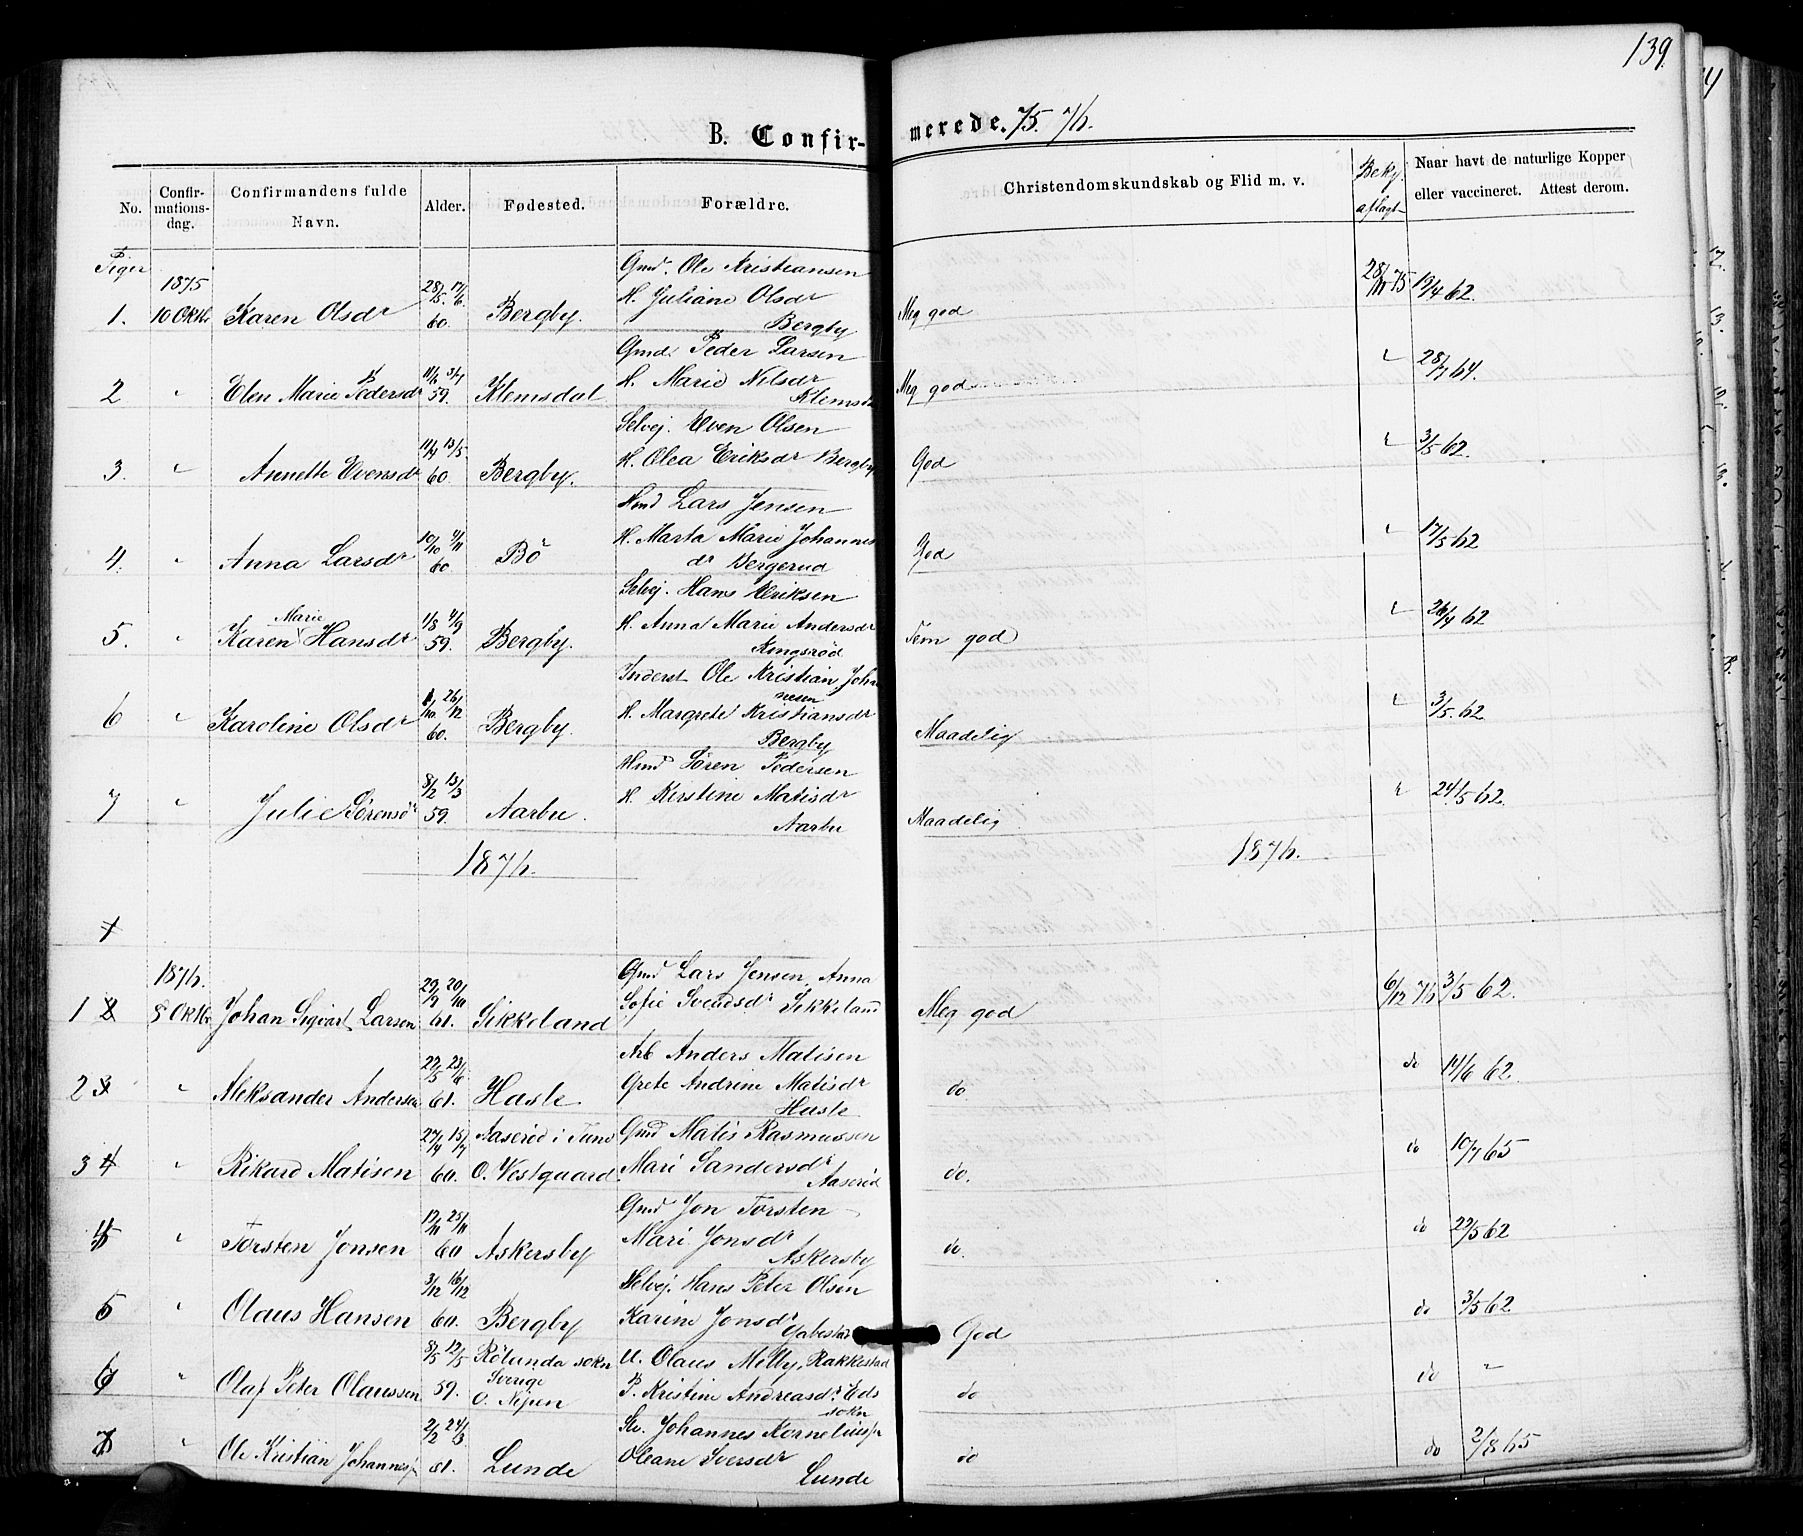 139.
B. Confir-merede. 75. 76.
No. Confirmationsdag. Confirmandens fulde Navn. Alder. Fødested. Forældre. Christendomskundskab og Flid m. v. Beky. aflagt Naar havt de naturlige Kopper eller vaccineret. Attest derom.
Piger
1875
Gmd. Ole Kristiansen
28/5 17/6 H. Juliane Olsdr 28/11 75 19/4 62.
1. 10 Oktbr Karen Olsdr 60. Bergby. Bergby Meg god
Gmd. Peder Larsen
H. Marie Nilsdr " 28/7 64.
2 " Elen Marie Pedersdr 59. Klemsdal Klemsdal Meg god
Selvej. Even Olsen
3. " Annette Evensdr 60. Bergby. H. Olea Eriksdr Bergby God " 3/5 62.
Hmd Lars Jensen
10/10 4/11 H. Marta Marie Johannes " 17/5 62
4. " Anna Larsdr 60. Bö dr Bergerud God
Selvej. Hans Eriksen
Marie 1/8 4/9 H. Anna Marie Andersdr " 26/4 62
5. " Karen Hansdr 59. Bergby. Ringsrød Tem god
Inderst Ole Kristian Johan
nesen
26/12 H. Margrete Kristiansdr " 3/5 62
6 " Karoline Olsdr 60. Bergby. Bergby Maadelig
Hmd Søren Pedersen
8/2 13/3 H. Kirstine Matisdr " 24/5 62.
7 " Julie Sørensdr 59. Aarbu. Aarbu Maadelig
1876. 1876.
1
1876. 29/9 20/10 Gmd Lars Jensen, Anna 6/12 76 3/5 62.
1 2 8 Oktbr Johan Sigvart Larsen 61. Sikkeland Sofie Svendsdr Sikkeland Meg god
Arb Anders Matisen
Grete Andrine Matisdr do 14/6 62.
2 3 " Aleksander Andersen 61. Hasle Hasle do.
Aaserød i Tune Gmd Matis Rasmussen do 10/7 65
3 4 " Rikard Matisen 60. O. Vestgaard. Mari Sandersdr Aaserød do.
17/11 25/11 Gmd Jon Torsten
4 " Torsten Jonsen 60 Askersby Mari Jonsdr Askersby do. do 29/5 62
3/12 16/12 Selvej. Hans Peter Olsen
5 " Olaus Hansen 60. Bergby Karine Jonsdr God do 3/5 62
8/5 12/5 Rølunda sokn U. Olaus Milby, Rakkestad
Sverige
6 " Olaf Peter Olaussen 59. O. Nipen P. Kristine Andreasdr Eds do do "
sokn
2/2 24/3 Johannes Kornelius
7 " Ole Kristian Johannes 61. Lunde Oleane Iversdr Lunde do do 2/8 65